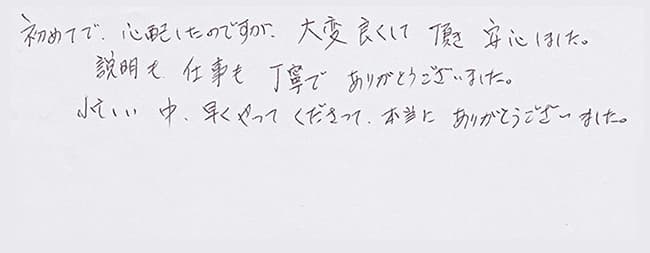 初めてで、心配したのですが、大変良くして頂き安心しました。
説明も仕事も丁寧でありがとうございました。
忙しい中、早くやってくださって、本当にありがとうございました。